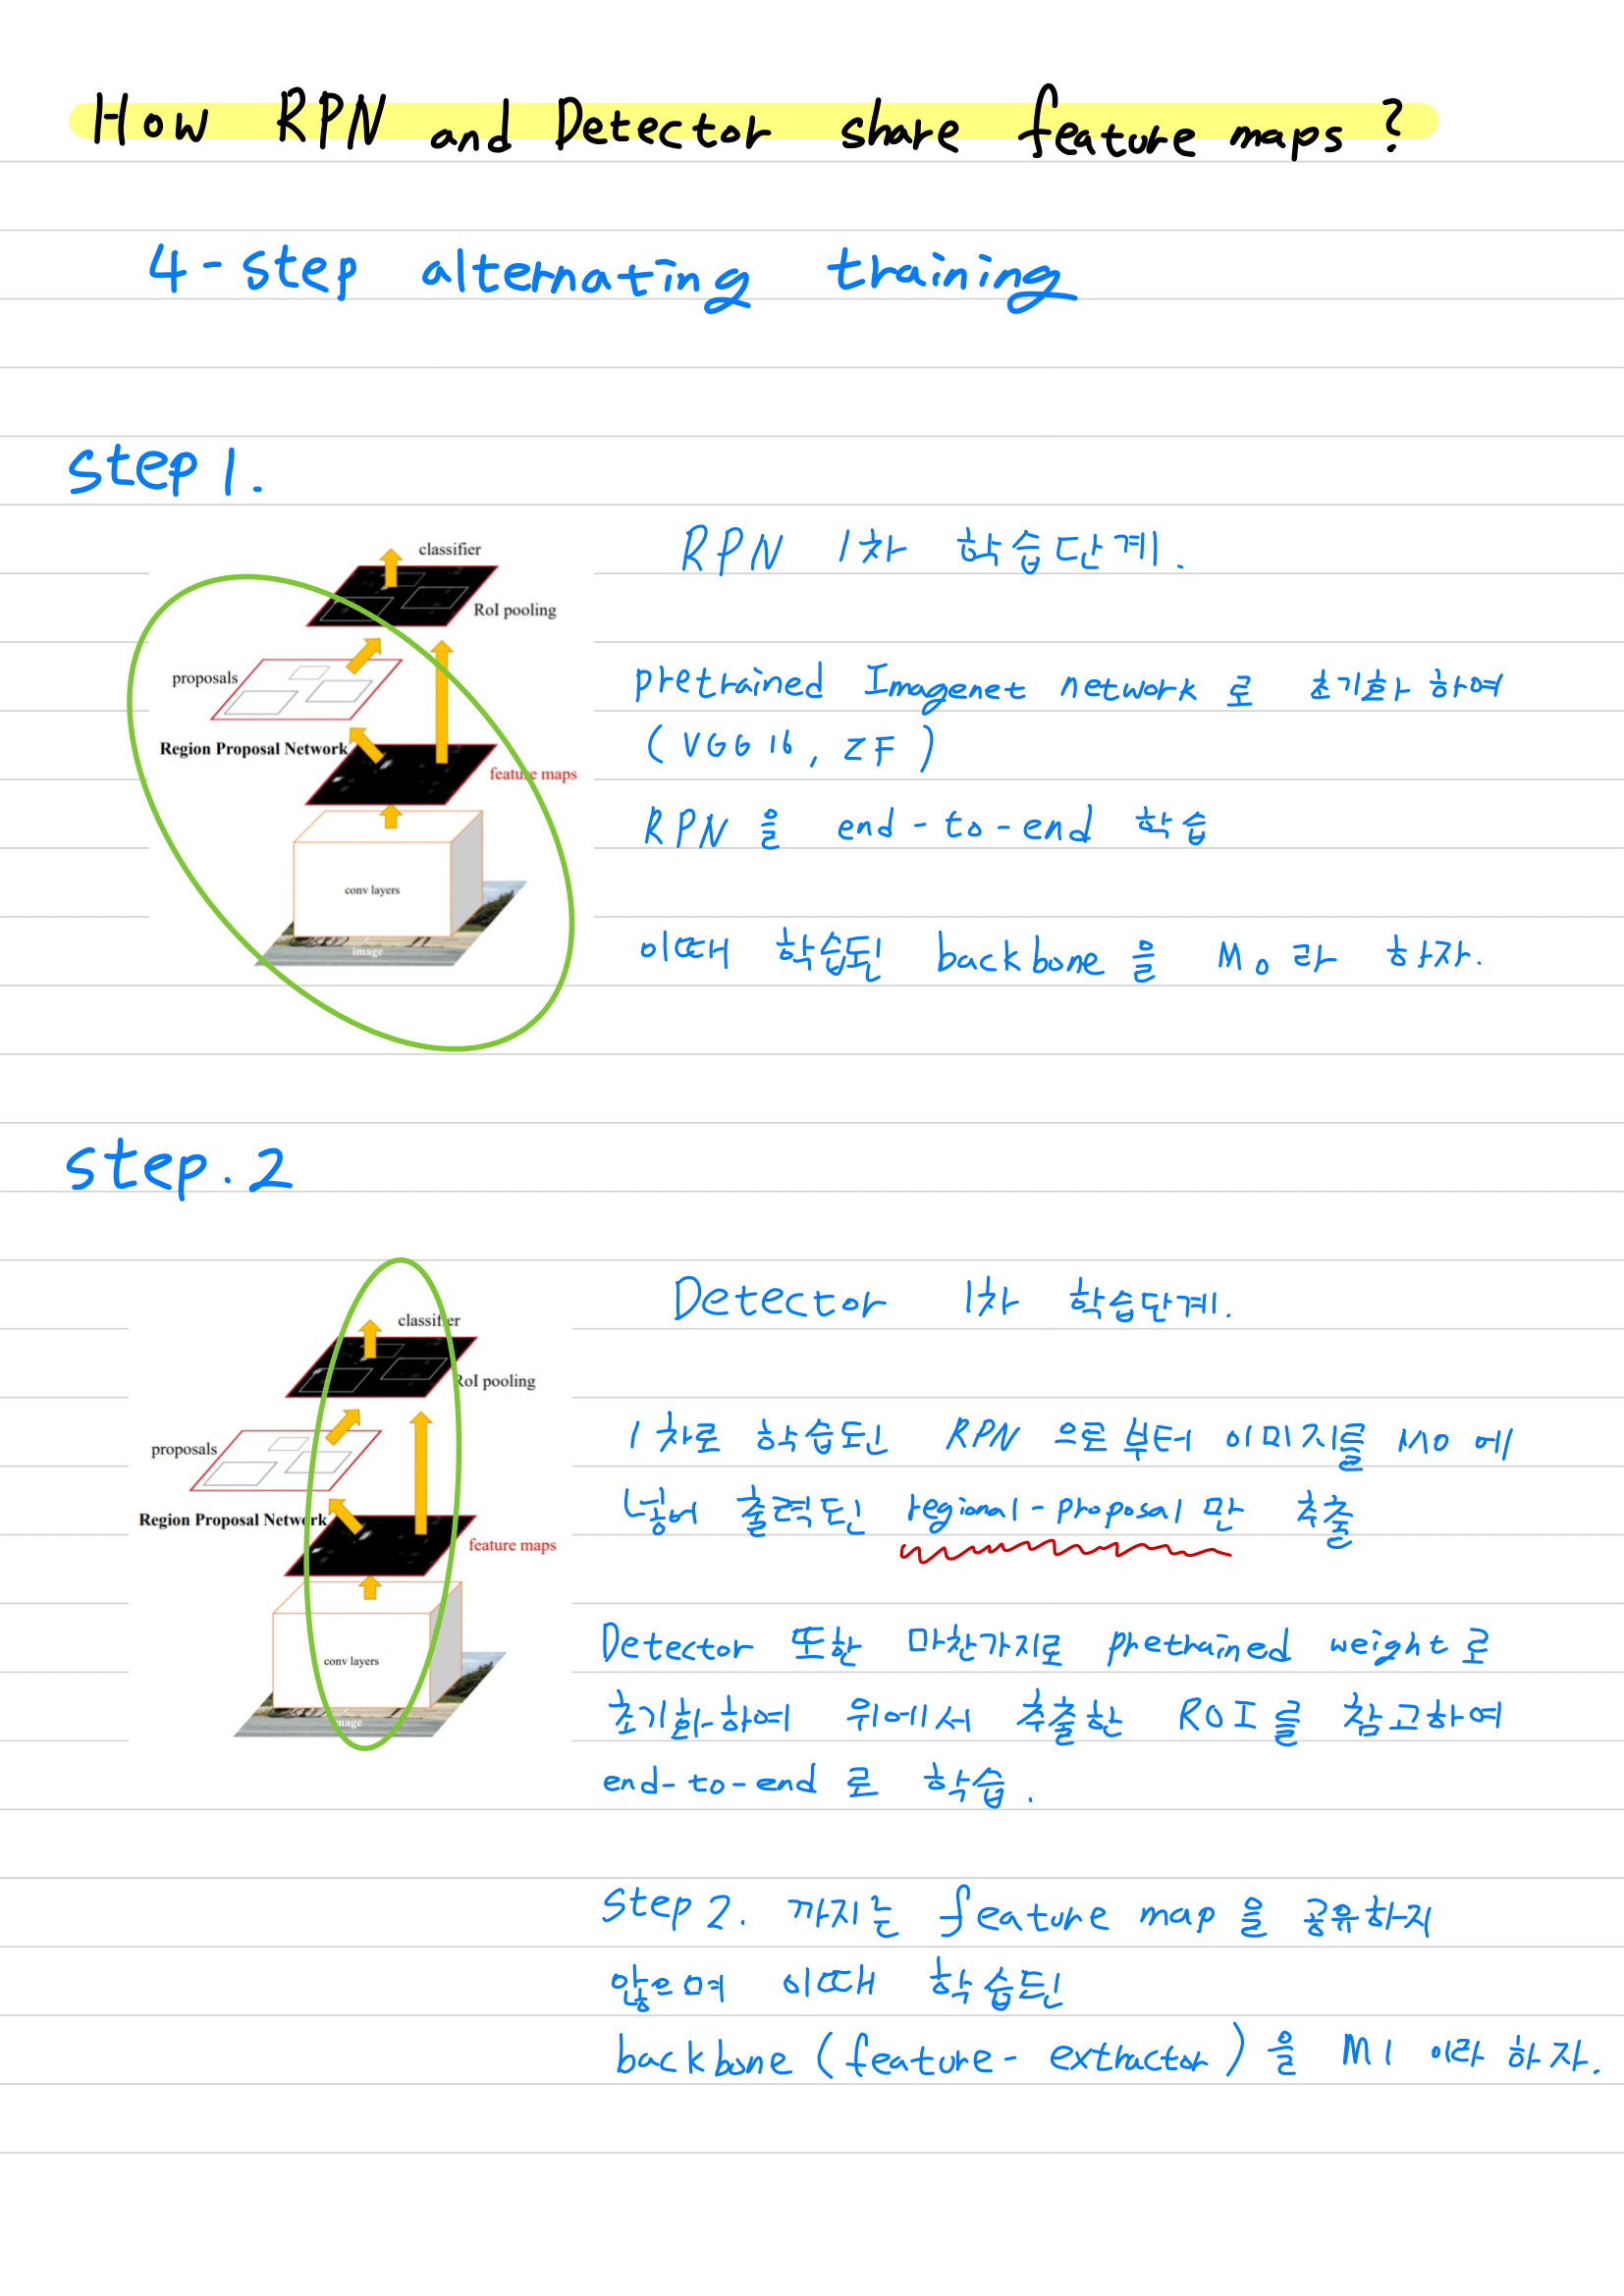 How RPN and Detector share feature maps ?
4-step alternating training
step 1.
classifier
RoI pooling
proposals
Region Proposal Network
feature maps
conv layers
image
RPN 1차 학습단계.
pretrained Imagenet network 로 초기화 하여
(VGG 16, ZF)
RPN 을 end-to-end 학습
이때 학습된 backbone 을 M0 라 하자.
step. 2
classifier
RoI pooling
proposals
Region Proposal Network
feature maps
conv layers
image
Detector 1차 학습단계.
1차로 학습된 RPN 으로부터 이미지를 M0 에
넣어 출력된 regional-proposal 만 추출
Detector 또한 마찬가지로 pretrained weight 로
초기화하여 위에서 추출한 ROI 를 참고하여
end-to-end 로 학습.
Step 2. 까지는 feature map 을 공유하지
않으며 이때 학습된
backbone (feature-extractor) 을 M1 이라 하자.